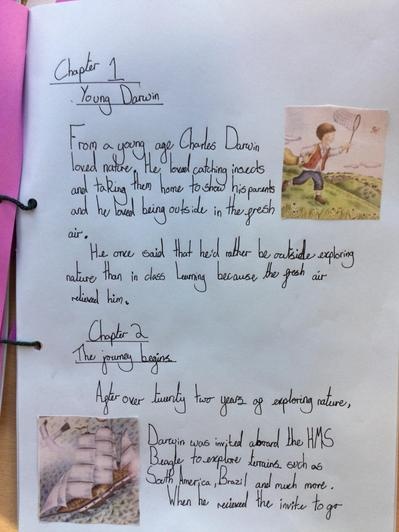 Chapter 1
Young Darwin
From a young age Charles Darwin
loved nature. He loved catching insects
and taking them home to show his parents
and he loved being outside in the fresh
air.
He once said that he'd rather be outside exploring
nature than in class learning because the fresh air
relieved him.
Chapter 2
The journey begins
After over twenty two years of exploring nature,
Darwin was invited aboard the HMS
Beagle to explore terrains such as
South America, Brazil and much more.
When he recieved the invite to go